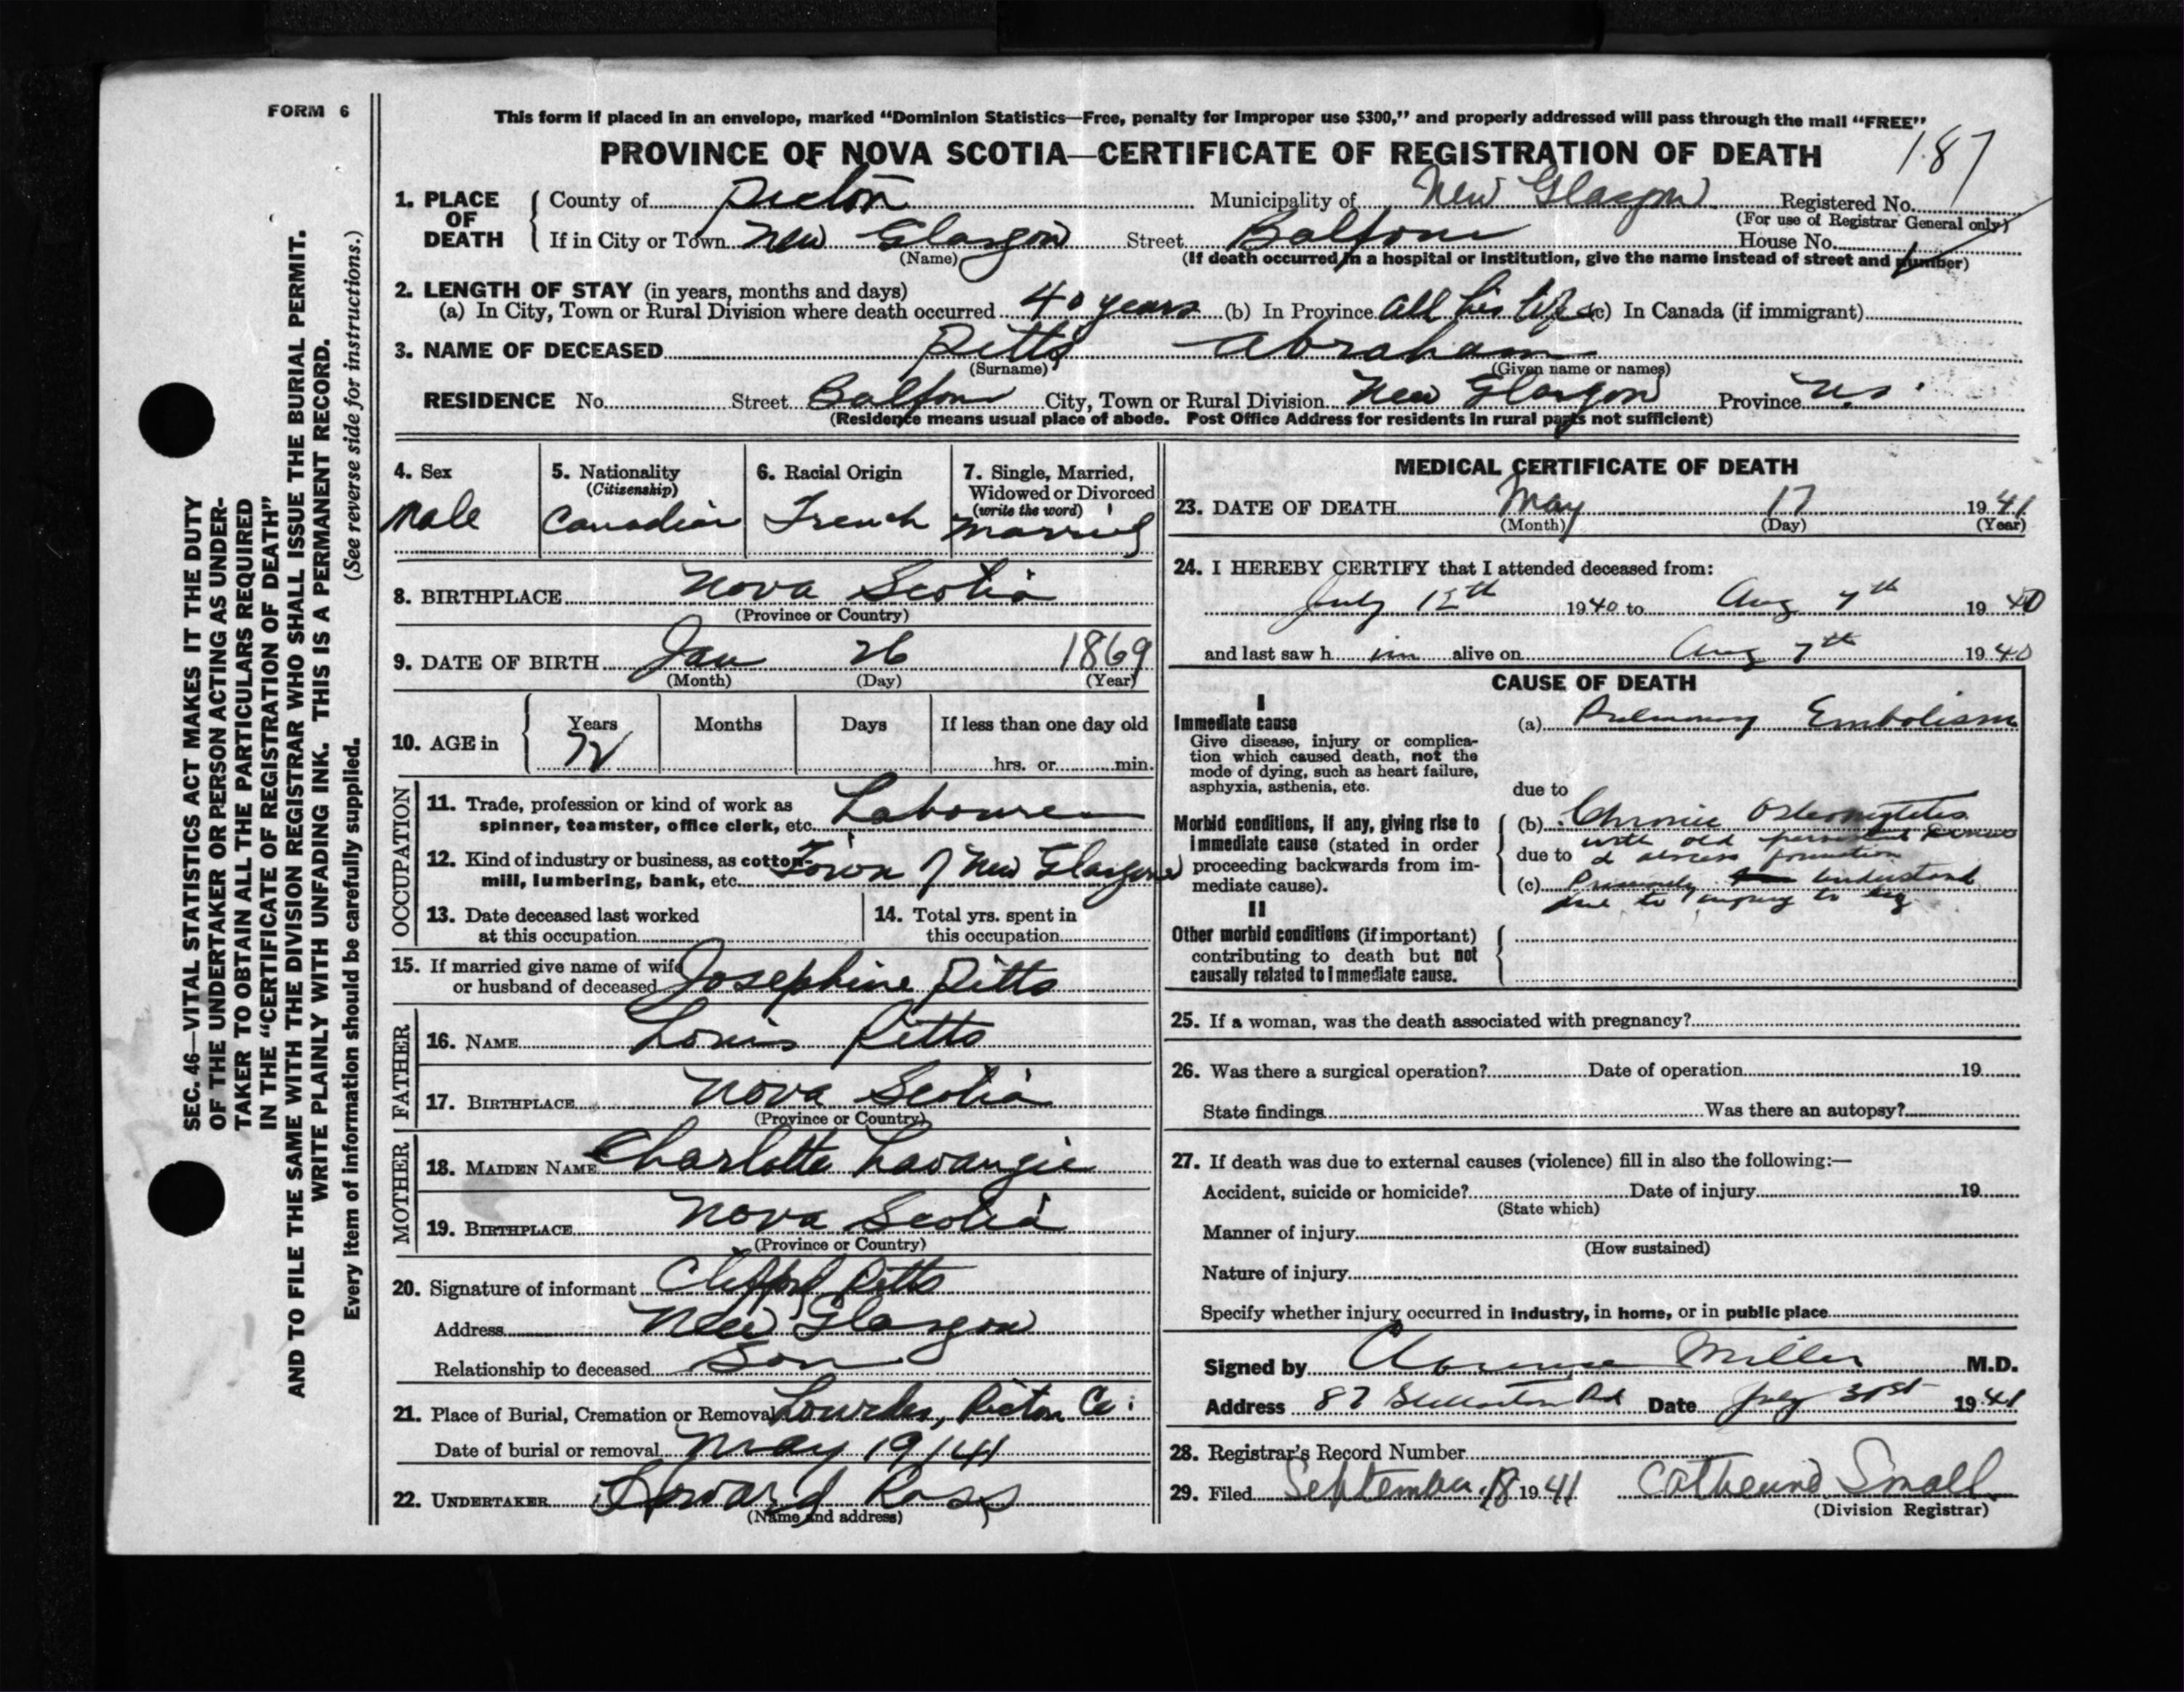 FORM 6
This form if placed in an envelope, marked “Dominion Statistics—Free, penalty for improper use $300,” and properly addressed will pass through the mail “FREE”
PROVINCE OF NOVA SCOTIA—CERTIFICATE OF REGISTRATION OF DEATH
187
1. PLACE OF DEATH
County of Pictou Municipality of New Glasgow Registered No.
(For use of Registrar General only)
If in City or Town New Glasgow Street Balfour House No.
(Name) (If death occurred in a hospital or institution, give the name instead of street and number)
2. LENGTH OF STAY (in years, months and days)
(a) In City, Town or Rural Division where death occurred 40 years (b) In Province all his life (c) In Canada (if immigrant)
3. NAME OF DECEASED Pitts Abraham
(Surname) (Given name or names)
RESIDENCE No. Street Balfour City, Town or Rural Division New Glasgow Province N.S.
(Residence means usual place of abode. Post Office Address for residents in rural parts not sufficient)
4. Sex
Male
5. Nationality
(Citizenship)
Canadian
6. Racial Origin
French
7. Single, Married,
Widowed or Divorced
(write the word)
Married
8. BIRTHPLACE Nova Scotia
(Province or Country)
9. DATE OF BIRTH Jan 26 1869
(Month) (Day) (Year)
10. AGE in
Years Months Days If less than one day old
72 hrs. or min.
OCCUPATION
11. Trade, profession or kind of work as
spinner, teamster, office clerk, etc. Labourer
12. Kind of industry or business, as cotton-
mill, lumbering, bank, etc. Town of New Glasgow
13. Date deceased last worked
at this occupation
14. Total yrs. spent in
this occupation
15. If married give name of wife
or husband of deceased Josephine Pitts
FATHER
16. NAME Louis Pitts
17. BIRTHPLACE Nova Scotia
(Province or Country)
MOTHER
18. MAIDEN NAME Charlotte Lavangie
19. BIRTHPLACE Nova Scotia
(Province or Country)
20. Signature of informant Clifford Pitts
Address New Glasgow
Relationship to deceased Son
21. Place of Burial, Cremation or Removal Lourdes, Pictou Co.
Date of burial or removal May 19/41
22. UNDERTAKER Howard Ross
(Name and address)
MEDICAL CERTIFICATE OF DEATH
23. DATE OF DEATH May 17 1941
(Month) (Day) (Year)
24. I HEREBY CERTIFY that I attended deceased from:
July 12th 1940 to Aug 7th 1940
and last saw him alive on Aug 7th 1940
CAUSE OF DEATH
I
Immediate cause
Give disease, injury or complica-
tion which caused death, not the
mode of dying, such as heart failure,
asphyxia, asthenia, etc.
(a) Pulmonary Embolism
due to
Morbid conditions, if any, giving rise to
immediate cause (stated in order
proceeding backwards from im-
mediate cause).
(b) Chronic Osteomyelitis
with old persistent sinus
due to & abscess formation
(c) Primarily understand
due to injury to leg
II
Other morbid conditions (if important)
contributing to death but not
causally related to immediate cause.
25. If a woman, was the death associated with pregnancy?
26. Was there a surgical operation? Date of operation 19
State findings Was there an autopsy?
27. If death was due to external causes (violence) fill in also the following:—
Accident, suicide or homicide? Date of injury 19
(State which)
Manner of injury
(How sustained)
Nature of injury
Specify whether injury occurred in industry, in home, or in public place
Signed by Clarence Miller M.D.
Address 87 Stellarton Rd Date July 31st 1941
28. Registrar’s Record Number
29. Filed September 18 1941 Catherine Small
(Division Registrar)
SEC. 46—VITAL STATISTICS ACT MAKES IT THE DUTY
OF THE UNDERTAKER OR PERSON ACTING AS UNDER-
TAKER TO OBTAIN ALL THE PARTICULARS REQUIRED
IN THE “CERTIFICATE OF REGISTRATION OF DEATH”
AND TO FILE THE SAME WITH THE DIVISION REGISTRAR WHO SHALL ISSUE THE BURIAL PERMIT.
WRITE PLAINLY WITH UNFADING INK. THIS IS A PERMANENT RECORD.
Every item of information should be carefully supplied. (See reverse side for instructions.)